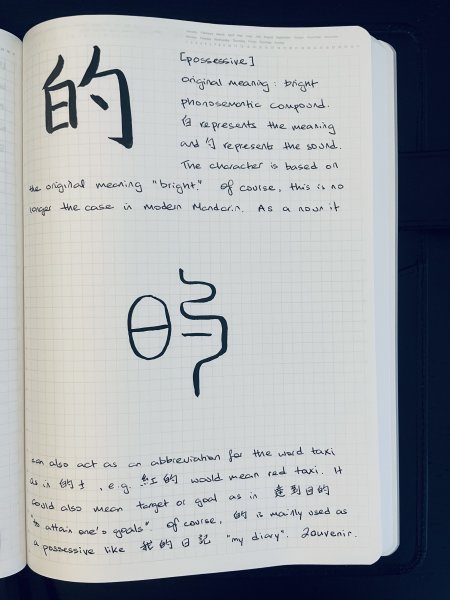 的
[possessive]
original meaning: bright
phonosematic compound.
白 represents the meaning
and 勺 represents the sound.
The character is based on
the original meaning "bright." Of course, this is no
longer the case in modern Mandarin. As a noun it
can also act as an abbreviation for the word taxi
as in 的士, e.g. 紅的 would mean red taxi. It
could also mean target or goal as in 達到目的
"to attain one's goals". Of course, 的 is mainly used as
a possessive like 我的日記 "my diary". Louvenir.